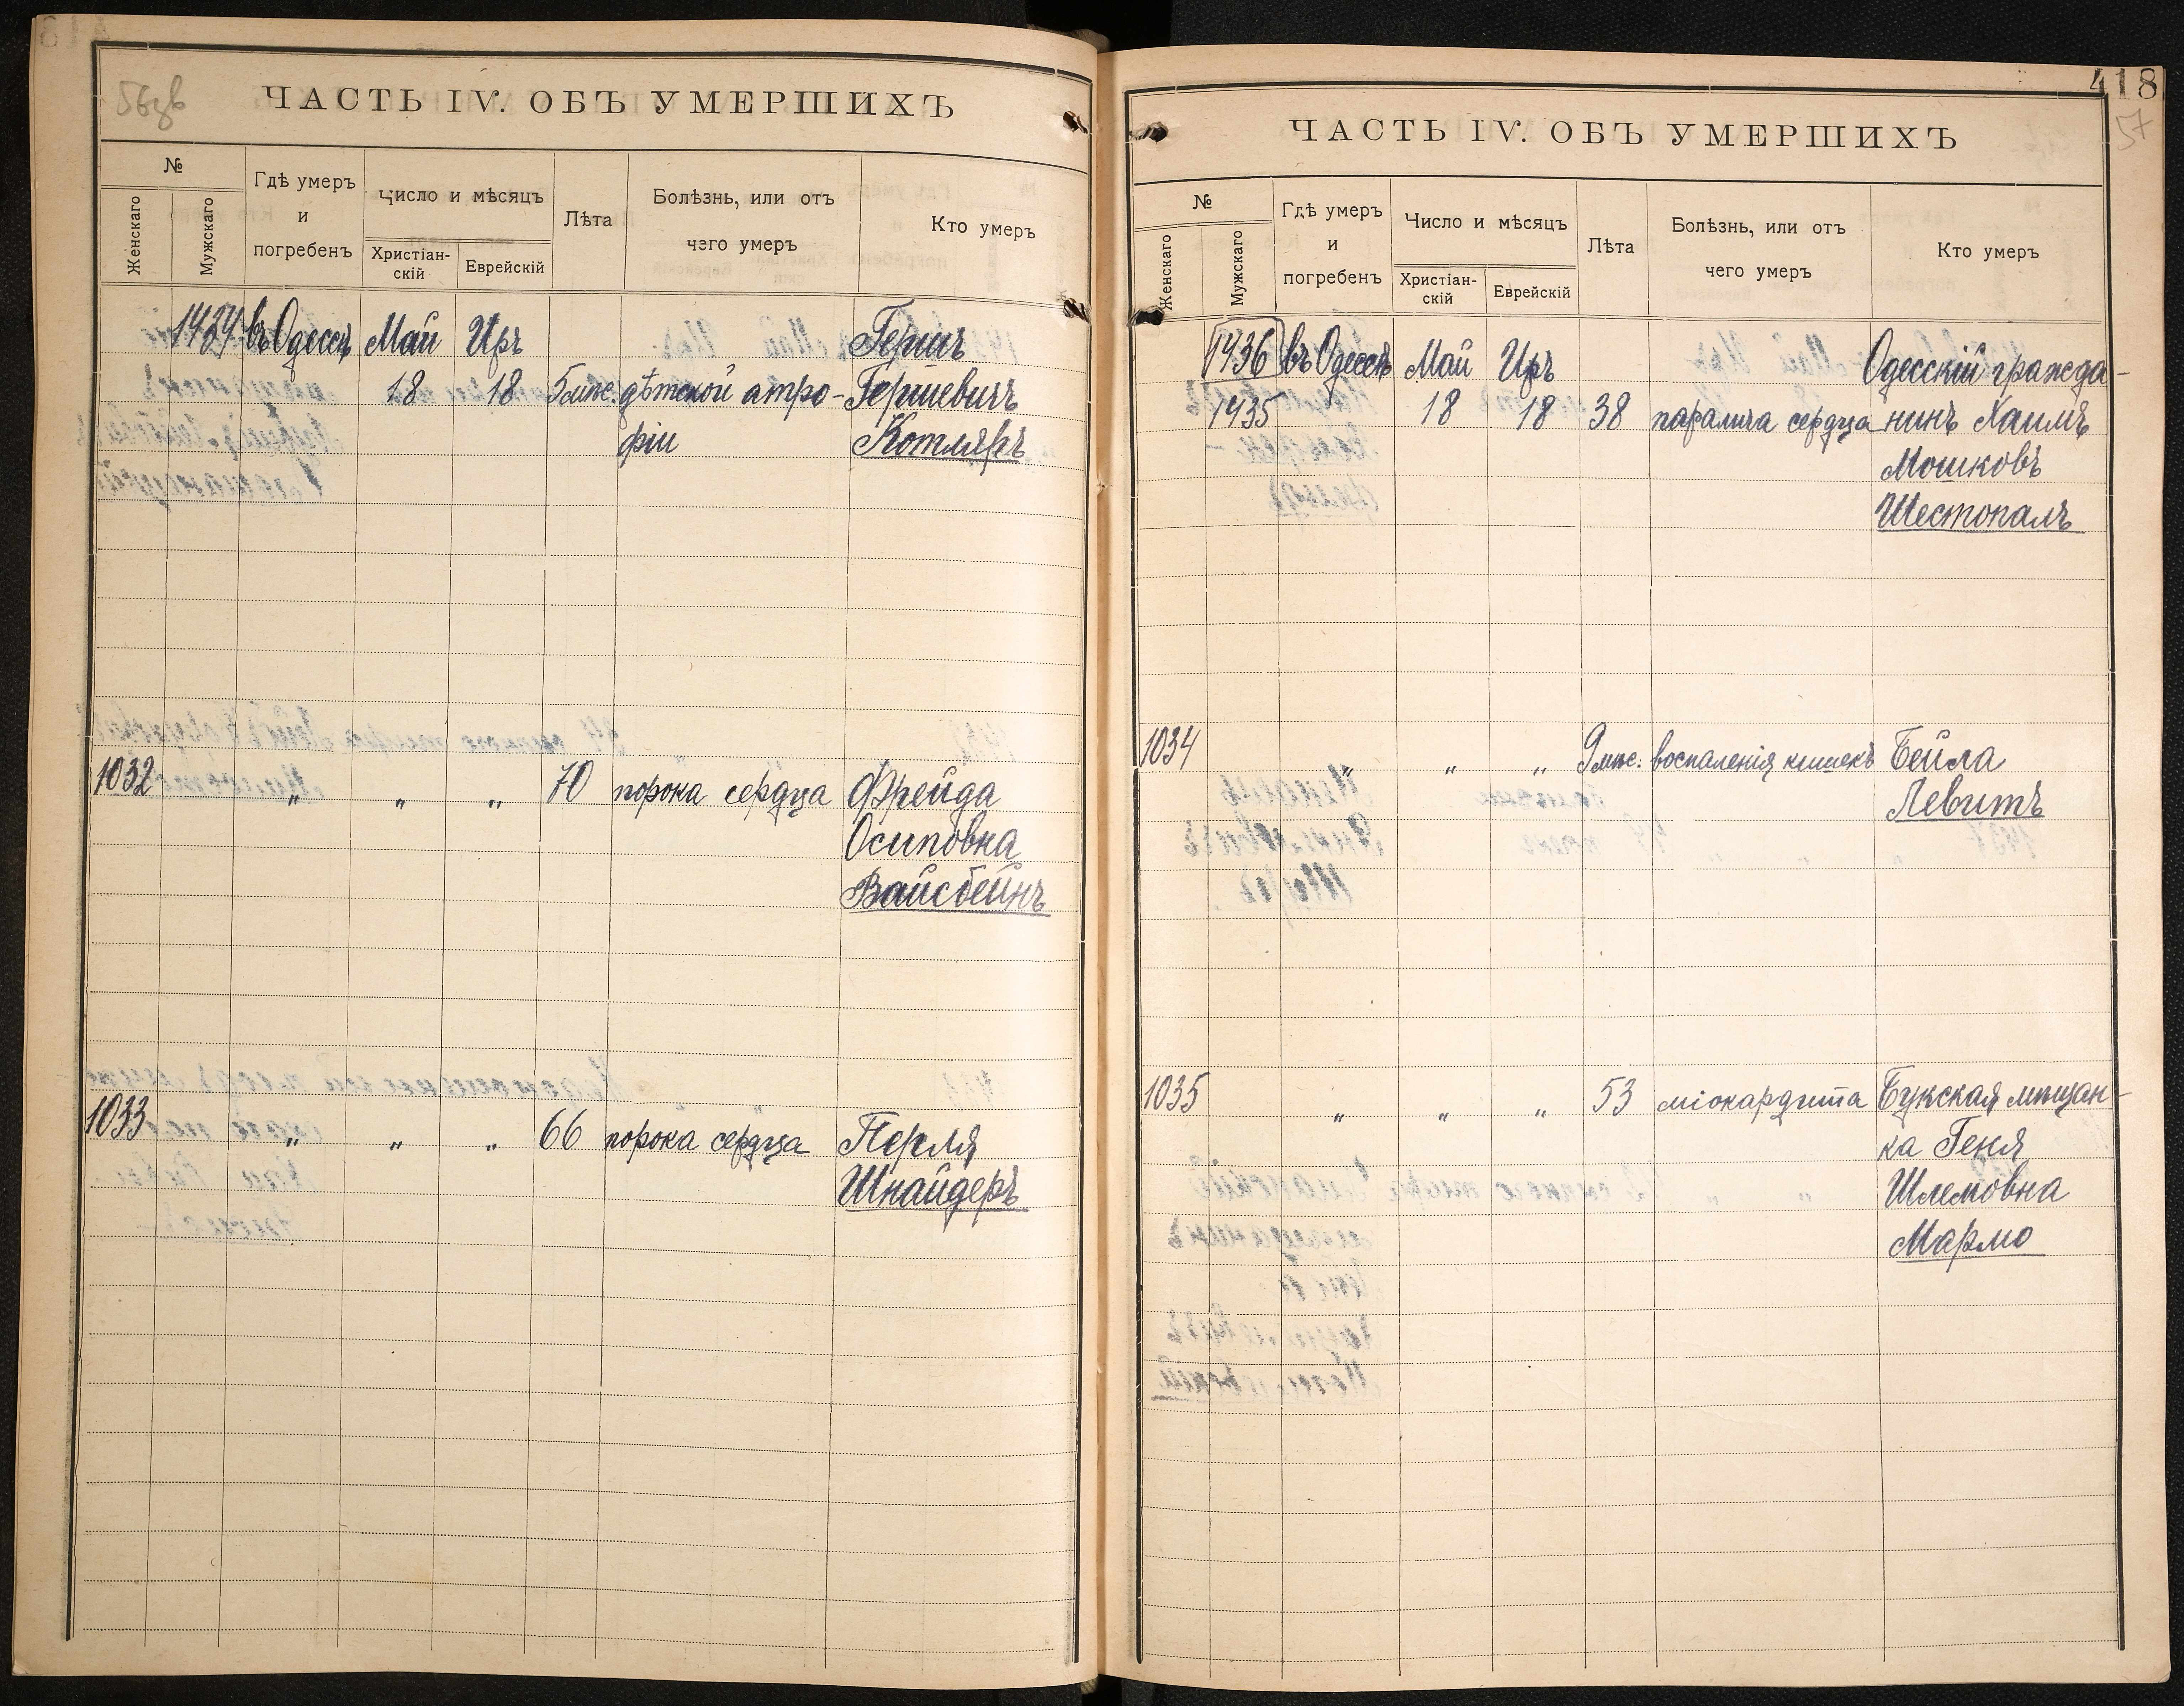 56 об
ЧАСТЬ IV. ОБЪ УМЕРШИХЪ
№
Женскаго
Мужскаго
Гдѣ умеръ
и
погребенъ
Число и мѣсяцъ
Христіан-
скій
Еврейскій
Лѣта
Болѣзнь, или отъ
чего умеръ
Кто умеръ
1434 въ Одессѣ Май Иръ Гершъ
18 18 5 мѣс. дѣтской атро- Гершевичъ
фіи Котляръ
1032 „ „ „ 70 порока сердца Фрейда
Осиповна
Вайсбейнъ
1033 „ „ „ 66 порока сердца Перля
Шнайдеръ
418
57
ЧАСТЬ IV. ОБЪ УМЕРШИХЪ
№
Женскаго
Мужскаго
Гдѣ умеръ
и
погребенъ
Число и мѣсяцъ
Христіан-
скій
Еврейскій
Лѣта
Болѣзнь, или отъ
чего умеръ
Кто умеръ
1436 въ Одессѣ Май Иръ Одесскій гражда-
1435 18 18 38 паралича сердца нинъ Хаимъ
Мошковъ
Шестопалъ
1034 „ „ „ 9 мѣс. воспаленія кишекъ Бейла
Левитъ
1035 „ „ „ 53 міокардита Букская мѣщан-
ка Геня
Шлемовна
Мармо